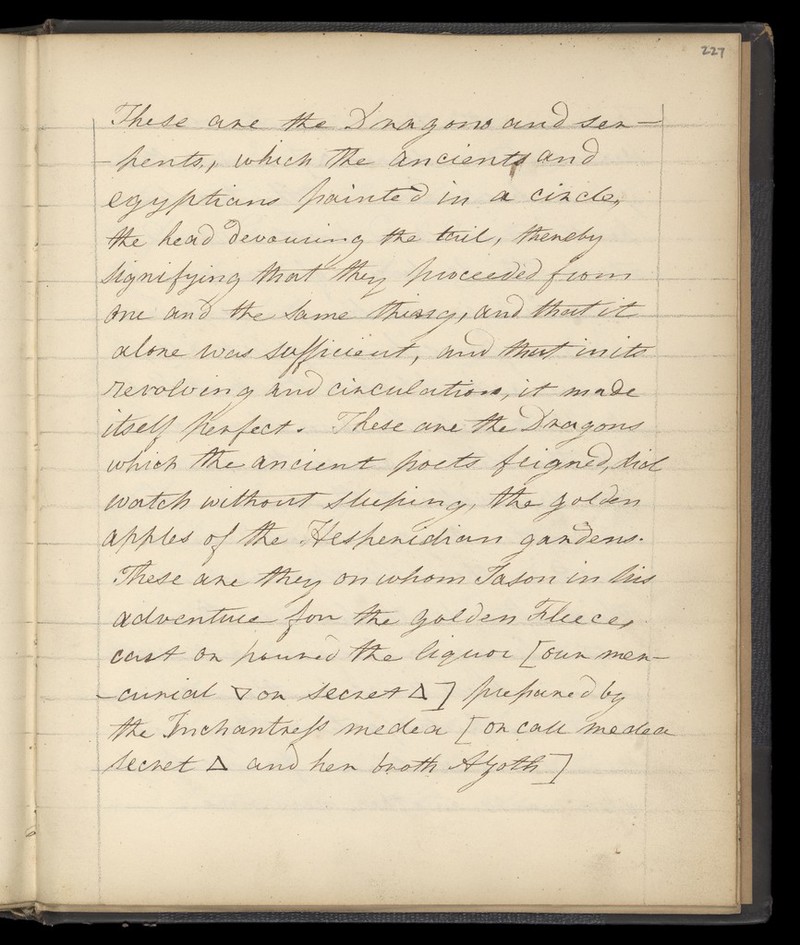 227
These are the Dragons and ser-
-pents, which the ancients and
egyptians painted in a circle,
the head devouring the tail, thereby
signifying that they proceeded from
one and the same thing, and that it
alone was sufficient, and that in its
revolving and circulation, it made
itself perfect. These are the Dragons
which the ancient poets feigned, did
watch without sleeping, the golden
apples of the Hesperidian gardens.
These are they on whom Jason in his
adventure for the golden Fleece,
cast or poured the liquor [our mer-
-curial 🜄 or secret 🜂] prepared by
the Inchantreſs medea [or call medea
secret 🜂 and her broth Azoth]